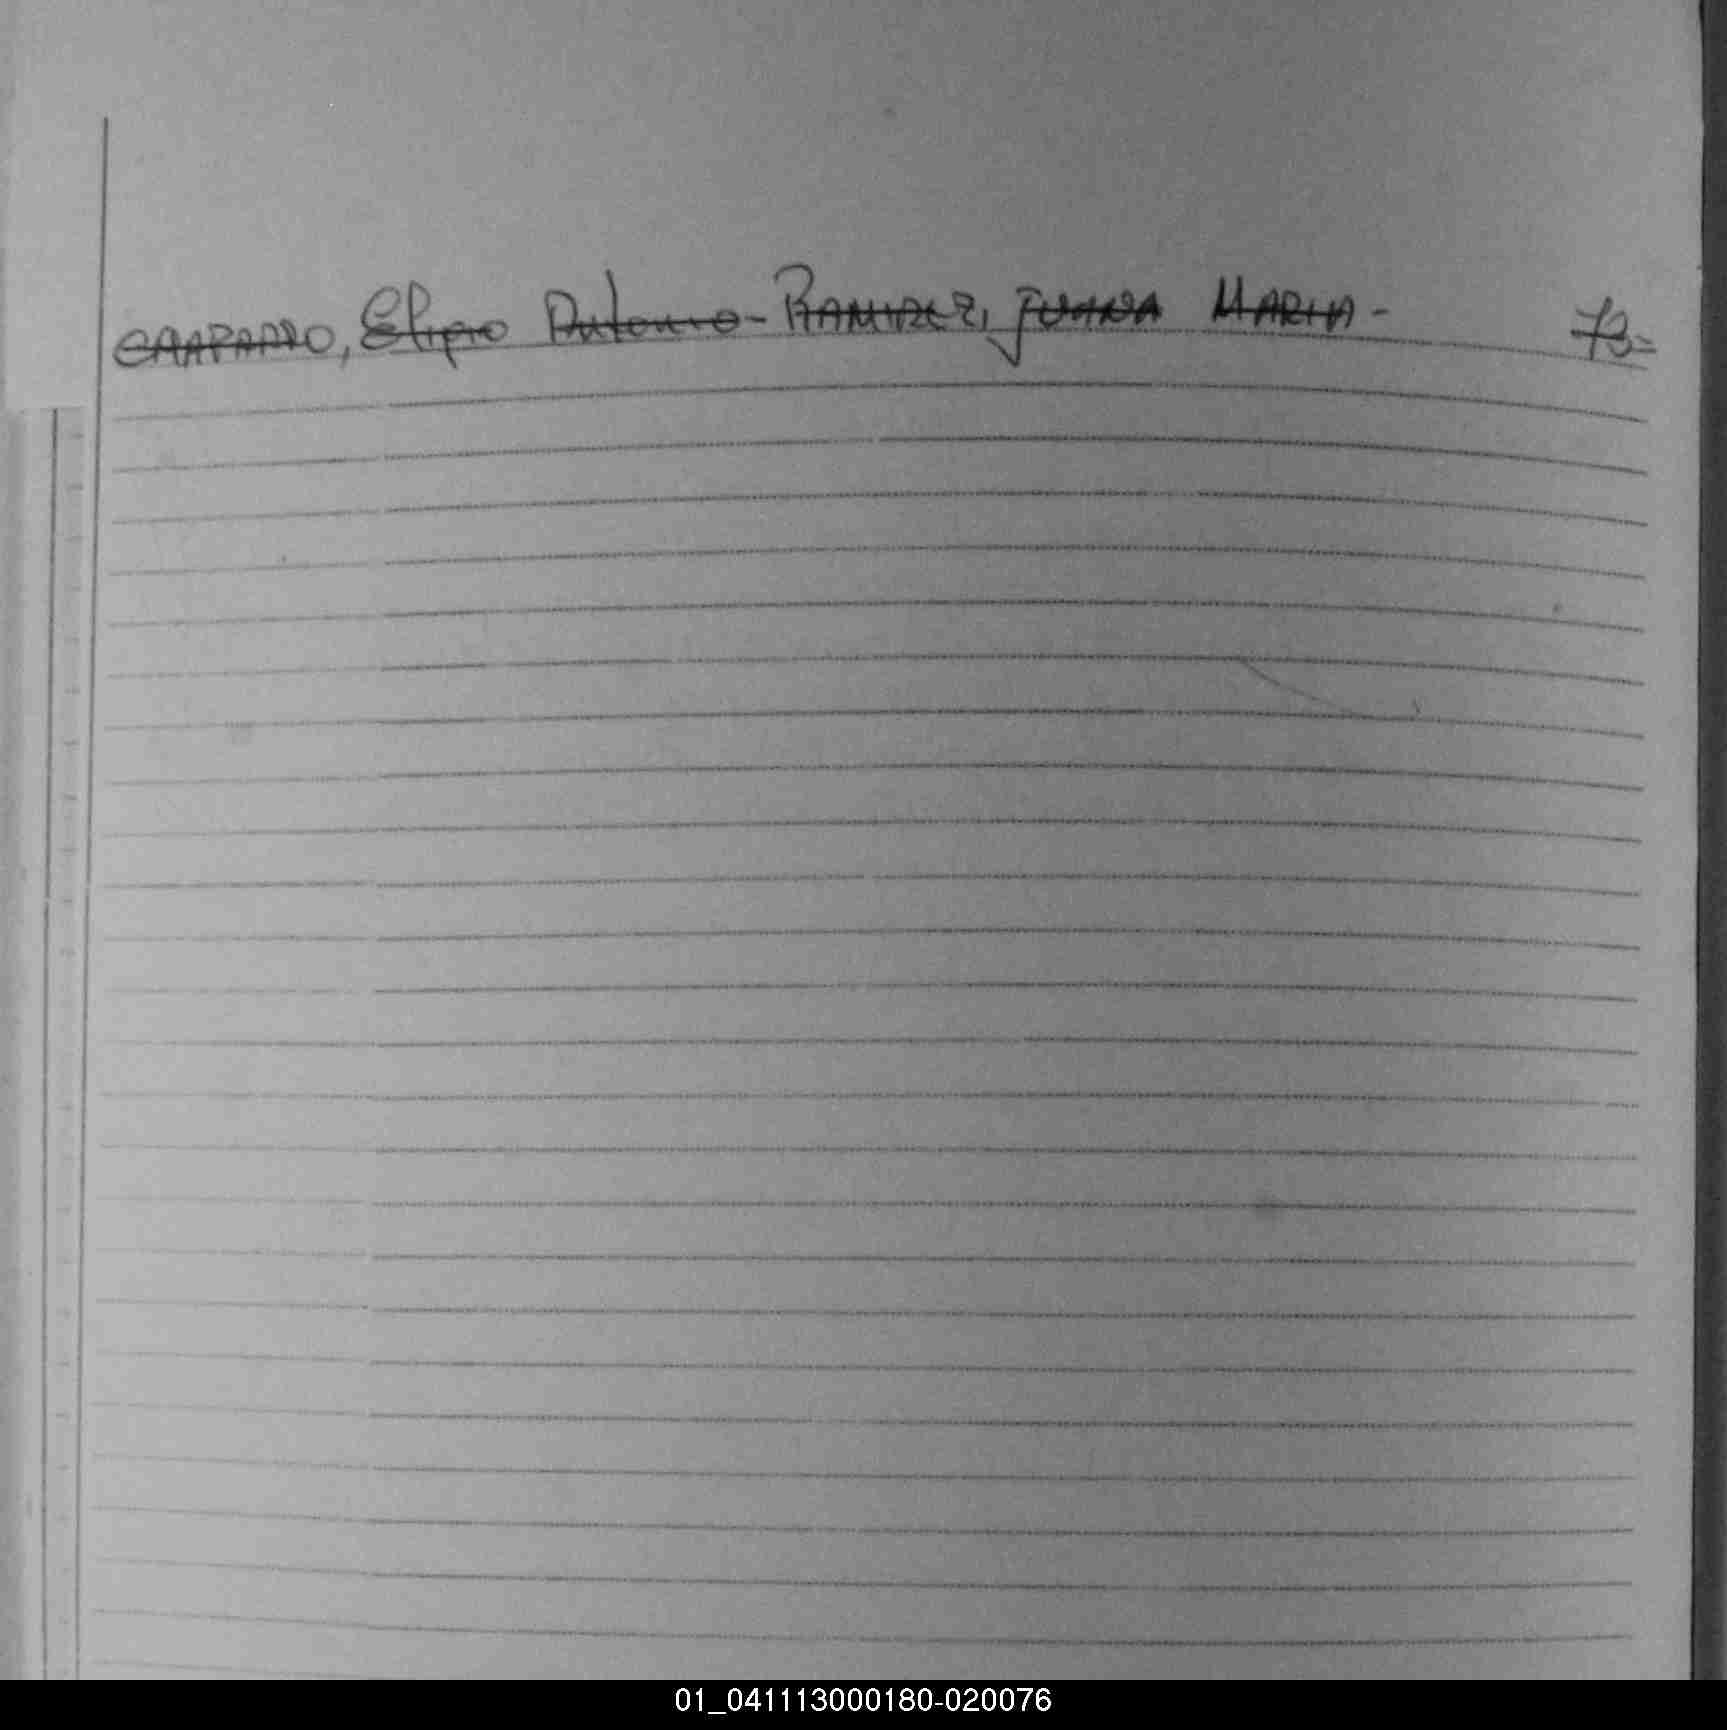 CHAPARRO, Elipio Antonio - RAMIREZ, JUANA MARIA - 73 =
01_041113000180-020076